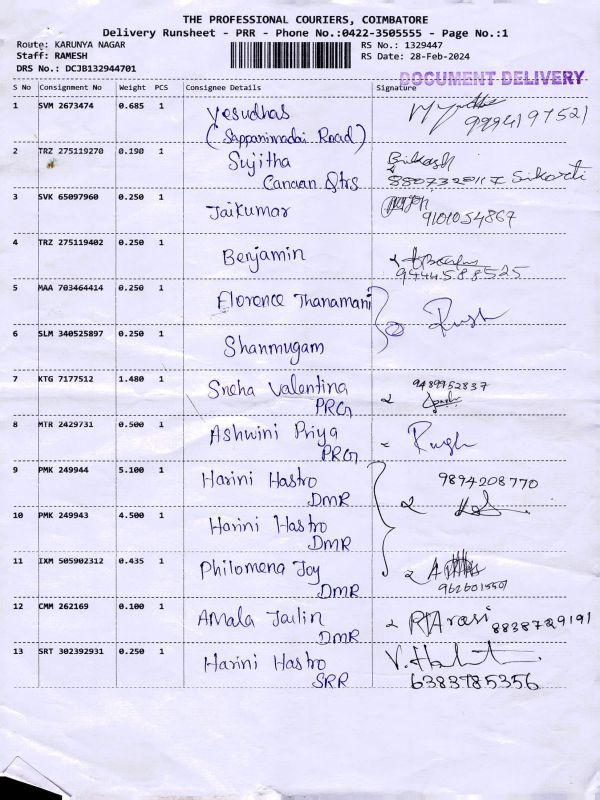 THE PROFESSIONAL COURIERS, COIMBATORE
Delivery Runsheet - PRR - Phone No.:0422-3505555 - Page No.:1
Route: KARUNYA NAGAR RS No.: 1329447
Staff: RAMESH RS Date: 28-Feb-2024
DRS No.: DCJB132944701
DOCUMENT DELIVERY
S No Consignment No Weight PCS Consignee Details Signature
1 SVM 2673474 0.685 1 Yesudhas
(Sippanimadai Road) 9994197521
2 TRZ 275119270 0.190 1 Sujitha Bikash
Canaan Qtrs
3 SVK 65097960 0.250 1 Jaikumar 9101054867
4 TRZ 275119402 0.250 1 Benjamin
9444588525
5 MAA 703464414 0.250 1 Florence Thanamani
6 SLM 340525897 0.250 1 Shanmugam
7 KTG 7177512 1.480 1 Sneha Valentina 9489952837
PRG
8 MTR 2429731 0.500 1 Ashwini Priya
PRG
9 PMK 249944 5.100 1 Harini Hastro 9894208770
DMR
10 PMK 249943 4.500 1 Harini Hastro
DMR
11 IXM 505902312 0.435 1 Philomena Joy
DMR
12 CMM 262169 0.100 1 Amala Jailin 8838729191
DMR
13 SRT 302392931 0.250 1 Harini Hastro
SRR 6383785356